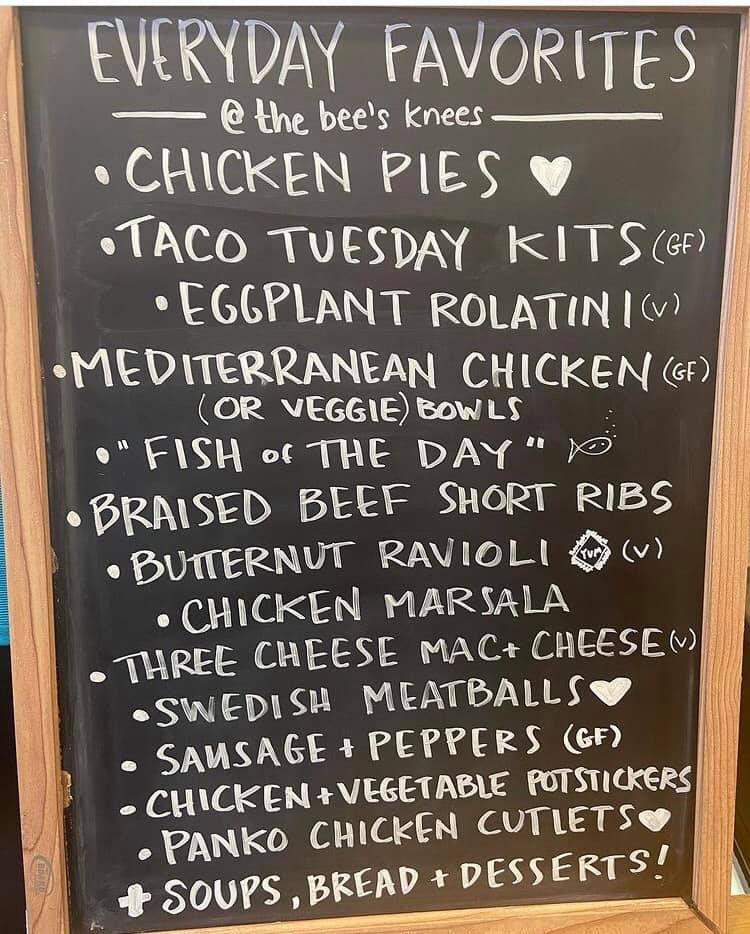 EVERYDAY FAVORITES
@ the bee's knees
• CHICKEN PIES
• TACO TUESDAY KITS (GF)
• EGGPLANT ROLATINI (V)
• MEDITERRANEAN CHICKEN (GF)
(OR VEGGIE) BOWLS
• "FISH of THE DAY"
• BRAISED BEEF SHORT RIBS
• BUTTERNUT RAVIOLI YUM (V)
• CHICKEN MARSALA
• THREE CHEESE MAC + CHEESE (V)
• SWEDISH MEATBALLS
• SAUSAGE + PEPPERS (GF)
• CHICKEN + VEGETABLE POTSTICKERS
• PANKO CHICKEN CUTLETS
+ SOUPS, BREAD + DESSERTS!